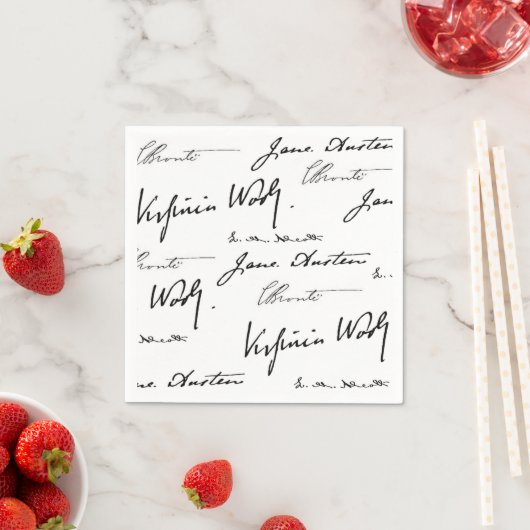 CBrontë Jane. Austen
CBrontë
Virginia Woolf. Jan
L. M. Alcott
Brontë Jane. Austen L.
Woolf. CBrontë
M. Alcott Virginia Woolf
ne. Austen L. M. Alcott